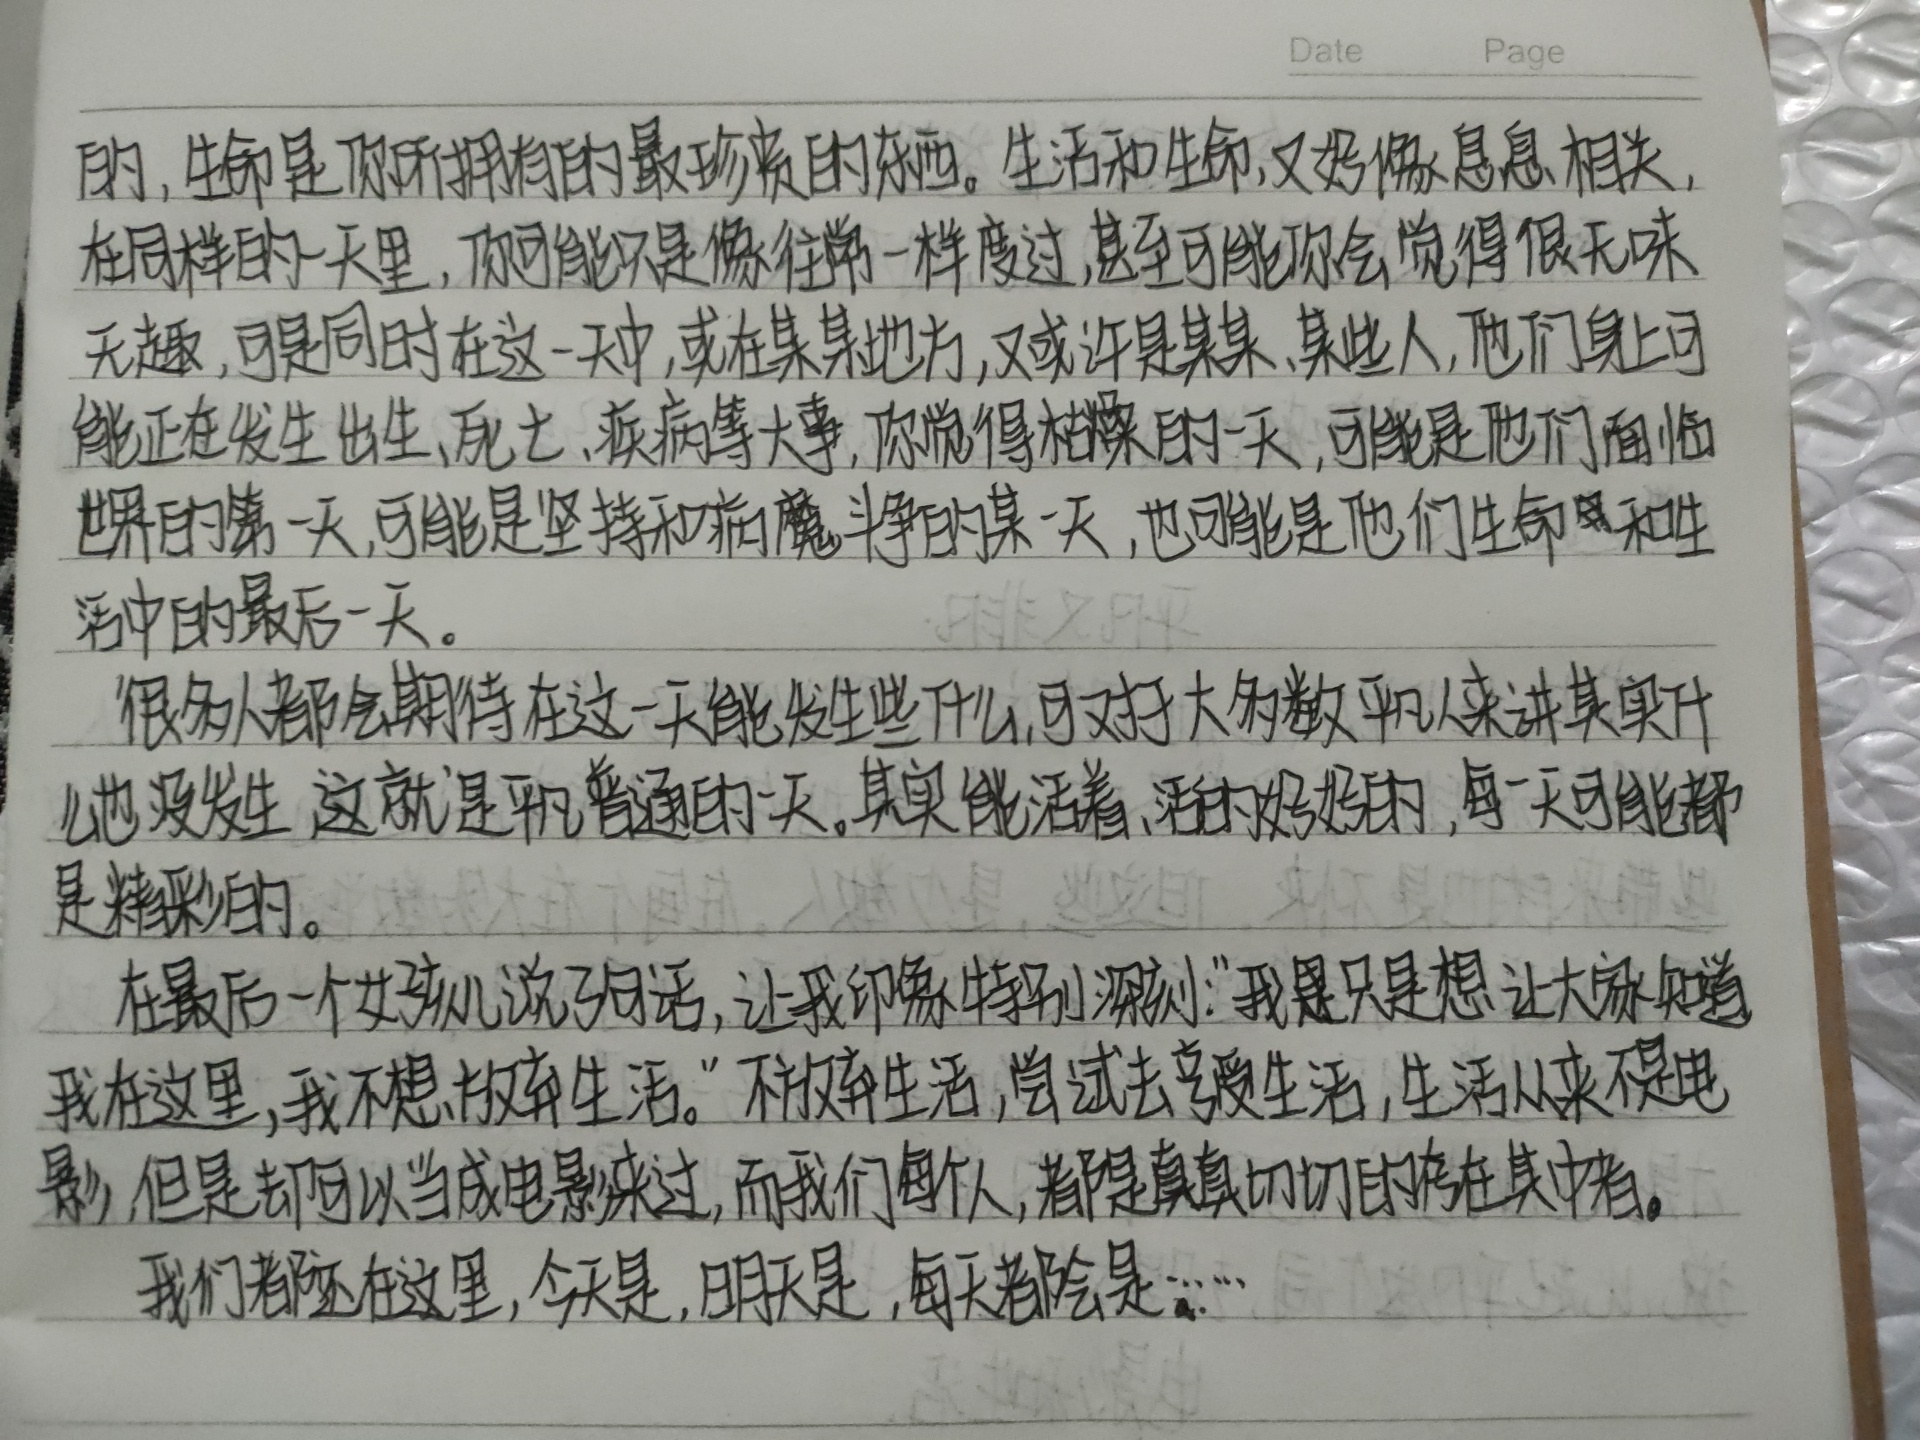 Date Page
的,生命是你所拥有的最珍贵的东西。生活和生命,又好像息息相关,
在同样的一天里,你可能只是像往常一样度过,甚至可能你会觉得很无味
无趣,可是同时在这一天中,或在某某地方,又或许是某某、某些人,他们身上可
能正在发生出生、死亡、疾病等大事,你觉得枯燥的一天,可能是他们面临
世界的第一天,可能是坚持和病魔斗争的某一天,也可能是他们生命和生
活中的最后一天。
很多人都会期待在这一天能发生些什么,可对于大多数平凡人来讲其实什
么也没发生 这就是平凡普通的一天。其实能活着、活的好好的,每一天可能都
是精彩的。
在最后一个女孩儿说了句话,让我印象特别深刻:"我只是想让大家知道
我在这里,我不想放弃生活。"不放弃生活,尝试去享受生活,生活从来不是电
影,但是却可以当成电影来过,而我们每个人,都是真真切切的存在其中着。
我们都还在这里,今天是,明天是,每天都会是……